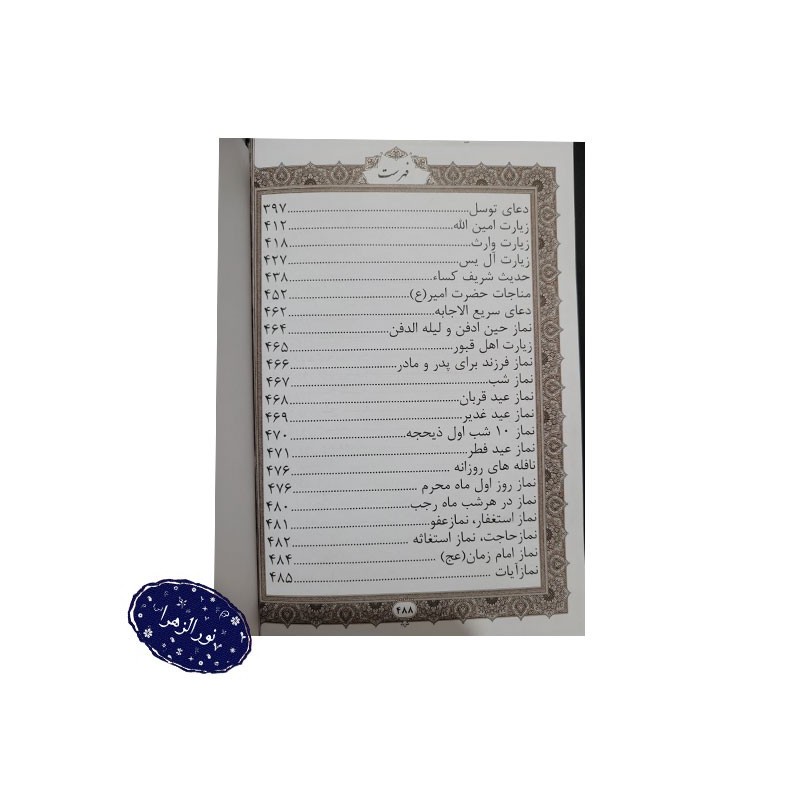 فهرست
دعای توسل........................................۳۹۷
زیارت امین الله........................................۴۱۲
زیارت وارث........................................۴۱۸
زیارت آل یس........................................۴۲۷
حدیث شریف کساء........................................۴۳۸
مناجات حضرت امیر(ع)........................................۴۵۲
دعای سریع الاجابه........................................۴۶۲
نماز حین ادفن و لیله الدفن........................................۴۶۴
زیارت اهل قبور........................................۴۶۵
نماز فرزند برای پدر و مادر........................................۴۶۶
نماز شب........................................۴۶۷
نماز عید قربان........................................۴۶۸
نماز عید غدیر........................................۴۶۹
نماز ۱۰ شب اول ذیحجه........................................۴۷۰
نماز عید فطر........................................۴۷۱
نافله های روزانه ........................................۴۷۶
نماز روز اول ماه محرم ........................................۴۷۶
نماز در هرشب ماه رجب........................................۴۸۰
نماز استغفار، نمازعفو........................................۴۸۱
نمازحاجت، نماز استغاثه ........................................۴۸۲
نماز امام زمان(عج) ........................................۴۸۴
نمازآیات ........................................۴۸۵
۴۸۸
نورالزهرا